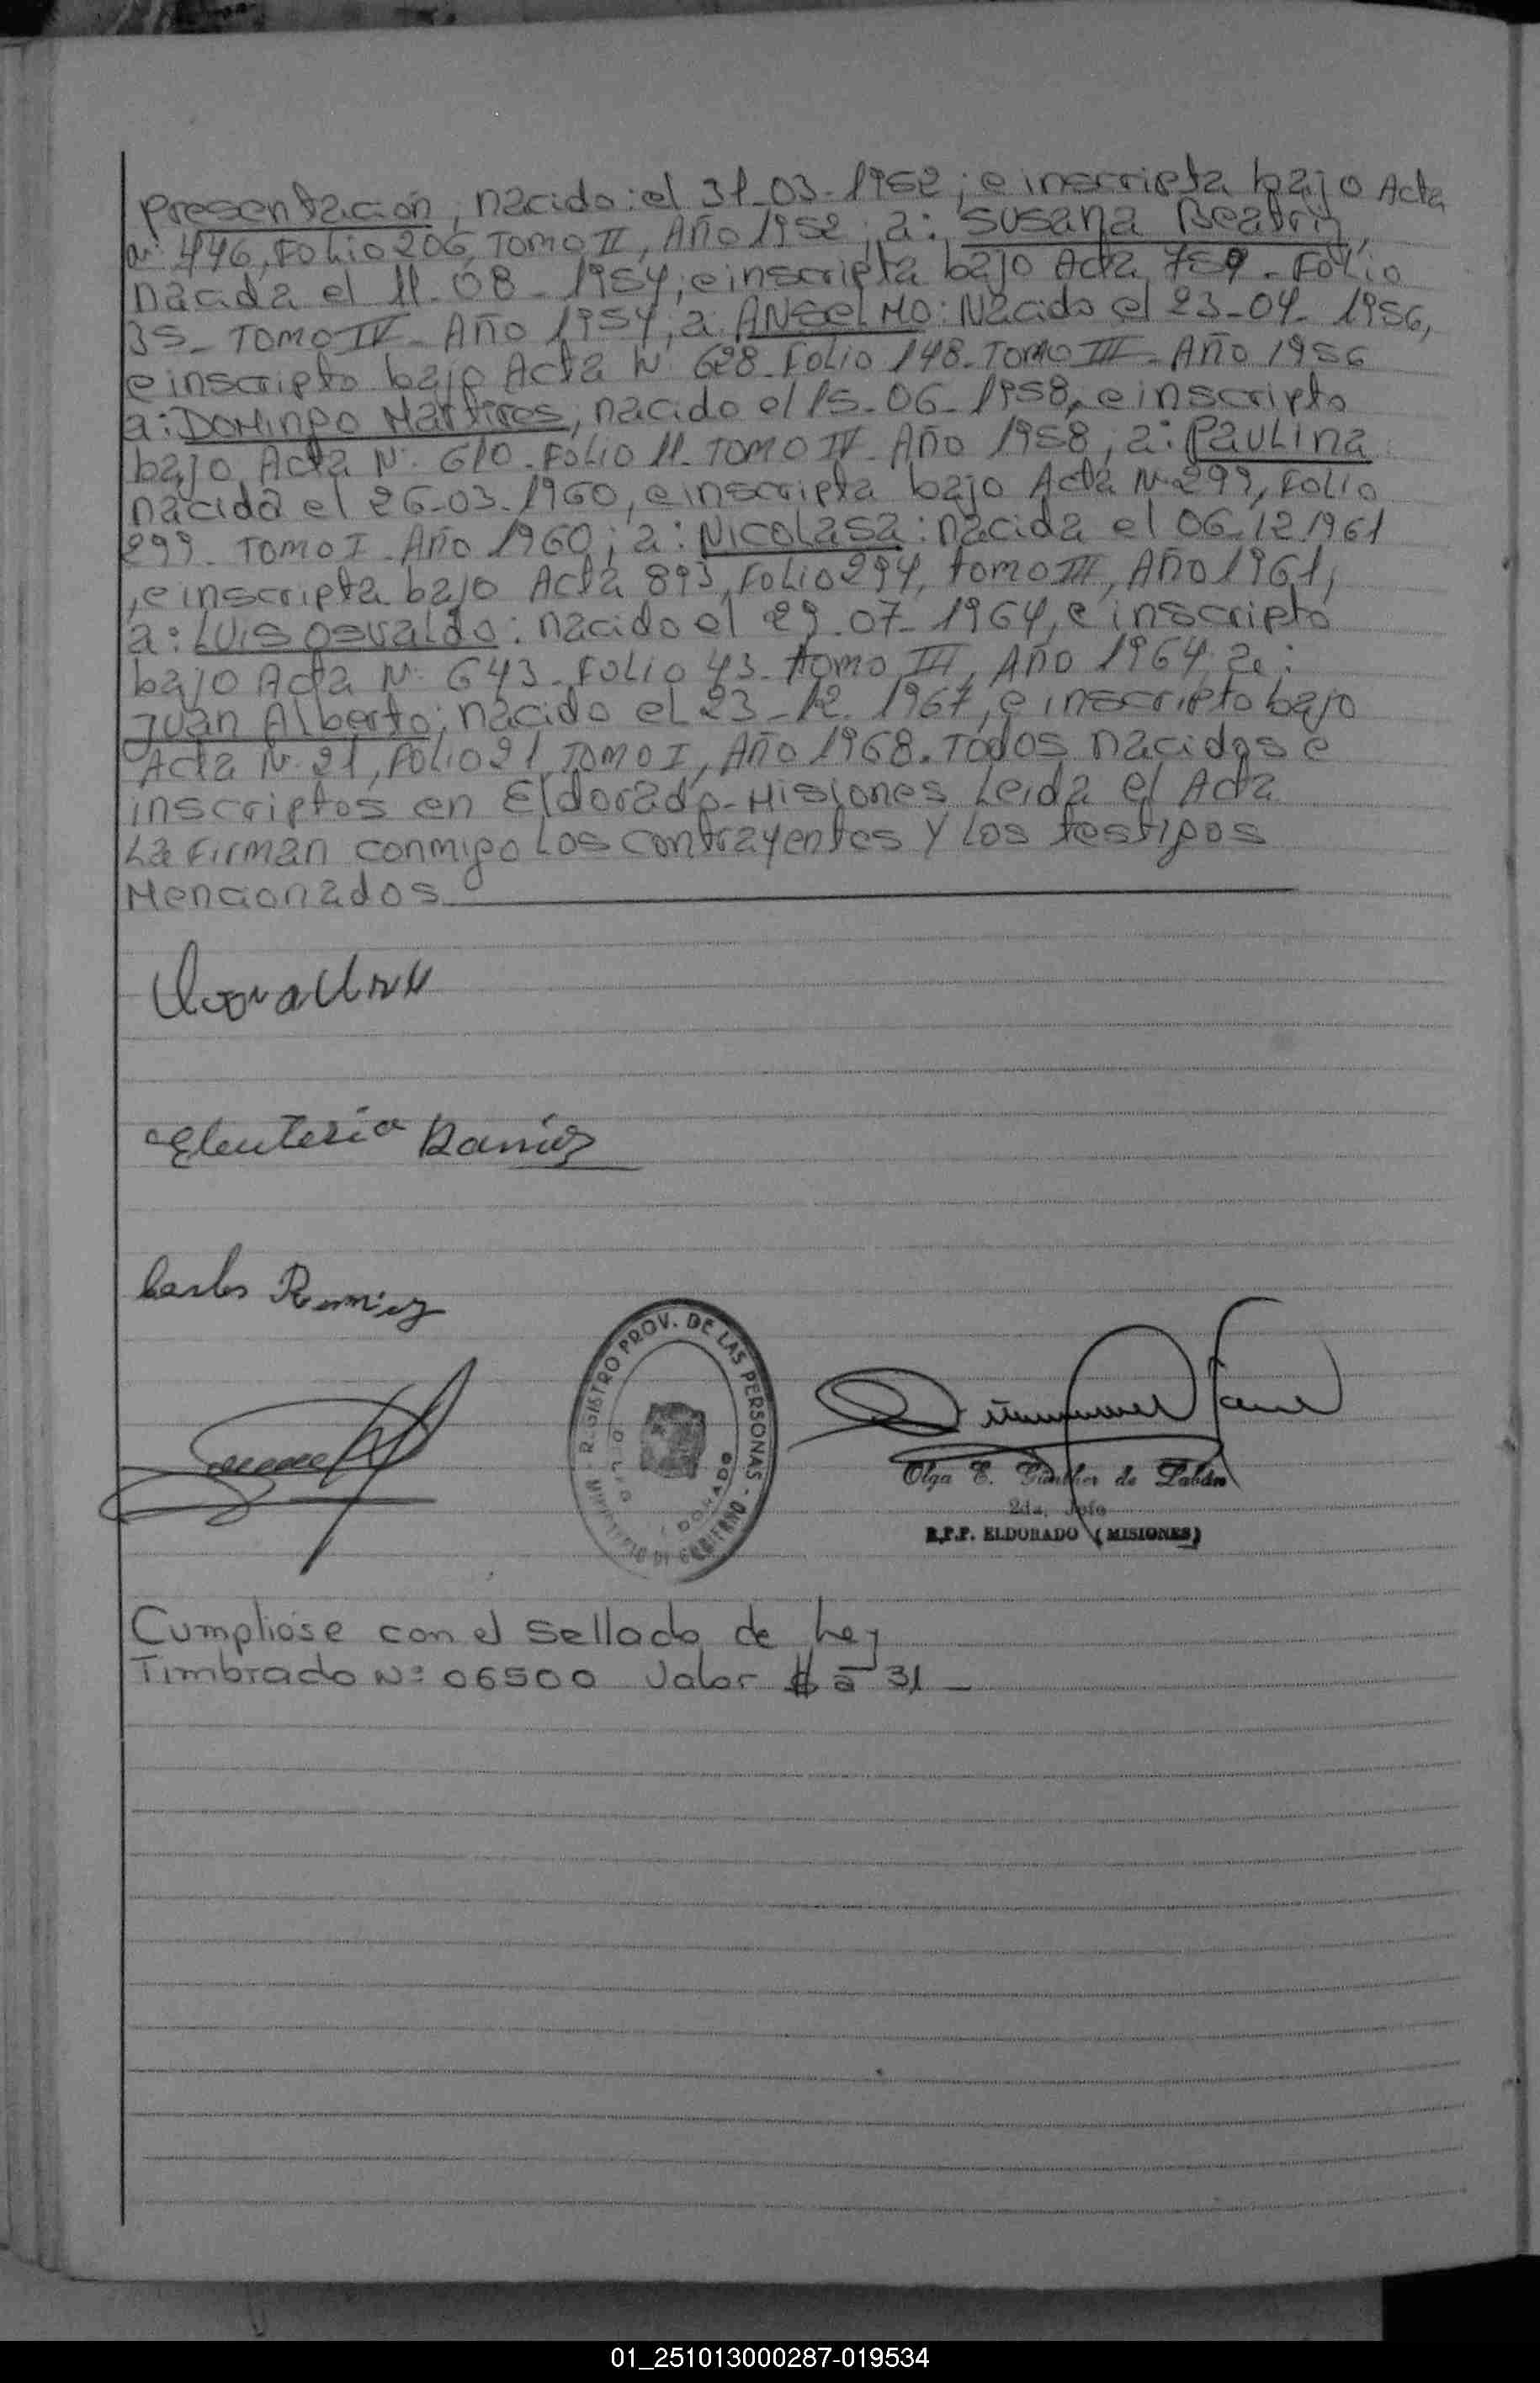 Presentación, nacido: el 31-03-1952; e inscripta bajo Acta
n: 446, Folio 206, TOMO II, AÑO 1952; a: Susana Beatriz,
nacida el 11-08-1954; e inscripta bajo Acta 759- Folio
35- TOMO IV- AÑO 1954; a: ANSELMO: Nacido el 23-04-1956,
e inscripto bajo Acta N: 628- Folio 148- TOMO III- AÑO 1956
a: DOMINGO Martires, nacido el 15-06-1958, e inscripto
bajo Acta N: 610- FOLIO 11- TOMO IV- AÑO 1958; a: PAULINA
nacida el 26-03-1960, e inscripta bajo Acta N: 299, FOLIO
299- TOMO I- AÑO 1960; a: NICOLASA: nacida el 06-12 1961
, e inscripta bajo Acta 893, FOLIO 294, tomo III, AÑO 1961,
a: LUIS OSVALDO: nacido el 29-07-1964, e inscripto
bajo Acta N: 643- FOLIO 43- tomo III, AÑO 1964; a:
Juan Alberto; nacido el 23-12-1967, e inscripto bajo
Acta N: 21, FOLIO 21, TOMO I, AÑO 1968. Todos nacidos e
inscriptos en Eldorado-Misiones Leida el Acta
La FIRMAN conmigo Los contrayentes y Los testigos
Mencionados
Eleuteria Ramirez
Carlos Ramirez
REGISTRO PROV. DE LAS PERSONAS - MINISTERIO DE GOBIERNO
Olga E. Günther de Pabón
2da. Jefe
R.P.P. ELDORADO (MISIONES)
Cumpliose con el Sellado de Ley
Timbrado Nº 06500 Valor $ a 31-
01_251013000287-019534